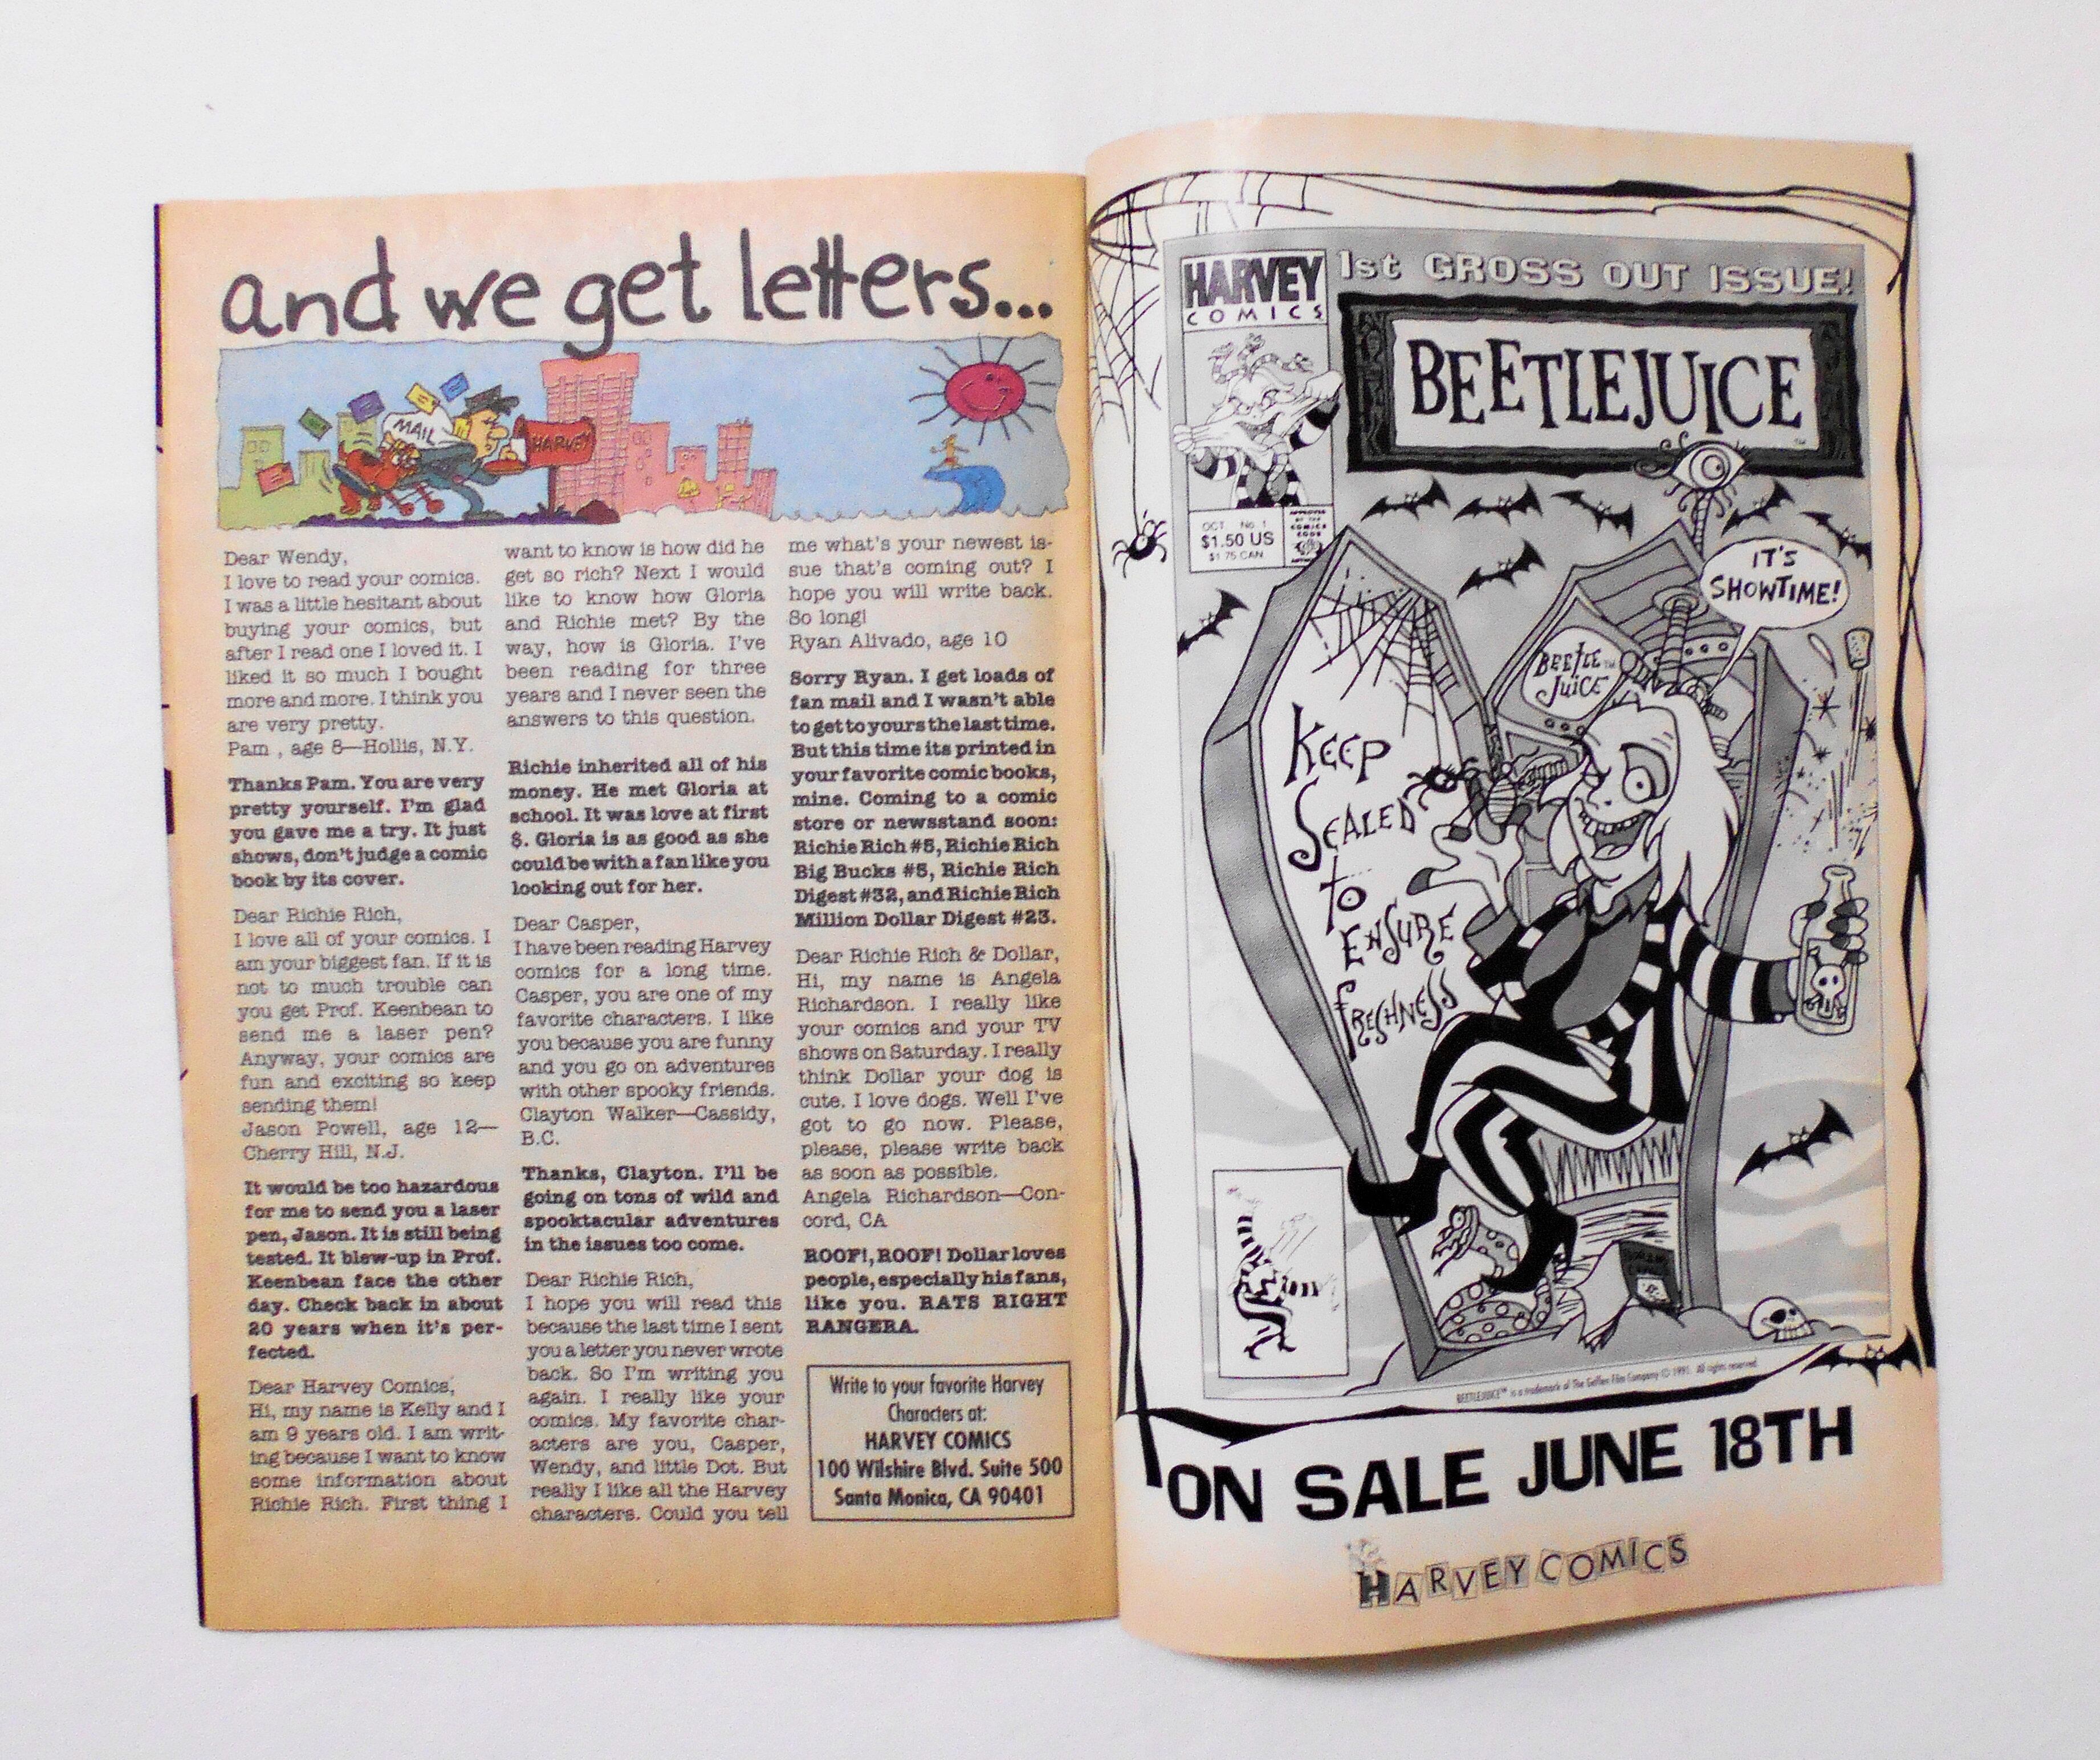 and we get letters...
MAIL
HARVEY
Dear Wendy,
I love to read your comics.
I was a little hesitant about
buying your comics, but
after I read one I loved it. I
liked it so much I bought
more and more. I think you
are very pretty.
Pam , age 8—Hollis, N.Y.
Thanks Pam. You are very
pretty yourself. I'm glad
you gave me a try. It just
shows, don't judge a comic
book by its cover.
Dear Richie Rich,
I love all of your comics. I
am your biggest fan. If it is
not to much trouble can
you get Prof. Keenbean to
send me a laser pen?
Anyway, your comics are
fun and exciting so keep
sending them!
Jason Powell, age 12—
Cherry Hill, N.J.
It would be too hazardous
for me to send you a laser
pen, Jason. It is still being
tested. It blew-up in Prof.
Keenbean face the other
day. Check back in about
20 years when it's per-
fected.
Dear Harvey Comics,
Hi, my name is Kelly and I
am 9 years old. I am writ-
ing because I want to know
some information about
Richie Rich. First thing I
want to know is how did he
get so rich? Next I would
like to know how Gloria
and Richie met? By the
way, how is Gloria. I've
been reading for three
years and I never seen the
answers to this question.
Richie inherited all of his
money. He met Gloria at
school. It was love at first
$. Gloria is as good as she
could be with a fan like you
looking out for her.
Dear Casper,
I have been reading Harvey
comics for a long time.
Casper, you are one of my
favorite characters. I like
you because you are funny
and you go on adventures
with other spooky friends.
Clayton Walker—Cassidy,
B.C.
Thanks, Clayton. I'll be
going on tons of wild and
spooktacular adventures
in the issues too come.
Dear Richie Rich,
I hope you will read this
because the last time I sent
you a letter you never wrote
back. So I'm writing you
again. I really like your
comics. My favorite char-
acters are you, Casper,
Wendy, and little Dot. But
really I like all the Harvey
characters. Could you tell
me what's your newest is-
sue that's coming out? I
hope you will write back.
So long!
Ryan Alivado, age 10
Sorry Ryan. I get loads of
fan mail and I wasn't able
to get to yours the last time.
But this time its printed in
your favorite comic books,
mine. Coming to a comic
store or newsstand soon:
Richie Rich #5, Richie Rich
Big Bucks #5, Richie Rich
Digest #32, and Richie Rich
Million Dollar Digest #23.
Dear Richie Rich & Dollar,
Hi, my name is Angela
Richardson. I really like
your comics and your TV
shows on Saturday. I really
think Dollar your dog is
cute. I love dogs. Well I've
got to go now. Please,
please, please write back
as soon as possible.
Angela Richardson—Con-
cord, CA
ROOF!, ROOF! Dollar loves
people, especially his fans,
like you. RATS RIGHT
RANGERA.
Write to your favorite Harvey
Characters at:
HARVEY COMICS
100 Wilshire Blvd. Suite 500
Santa Monica, CA 90401
HARVEY
COMICS
1st GROSS OUT ISSUE!
BEETLEJUICE
OCT. No. 1
$1.50 US
$1.75 CAN
APPROVED
BY THE
COMICS
CODE
IT'S
SHOWTIME!
BEETLE
JUICE
KEEP
SEALED
TO
ENSURE
FRESHNESS
BEETLEJUICE™ is a trademark of The Geffen Film Company © 1991. All rights reserved.
ON SALE JUNE 18TH
HARVEY COMICS